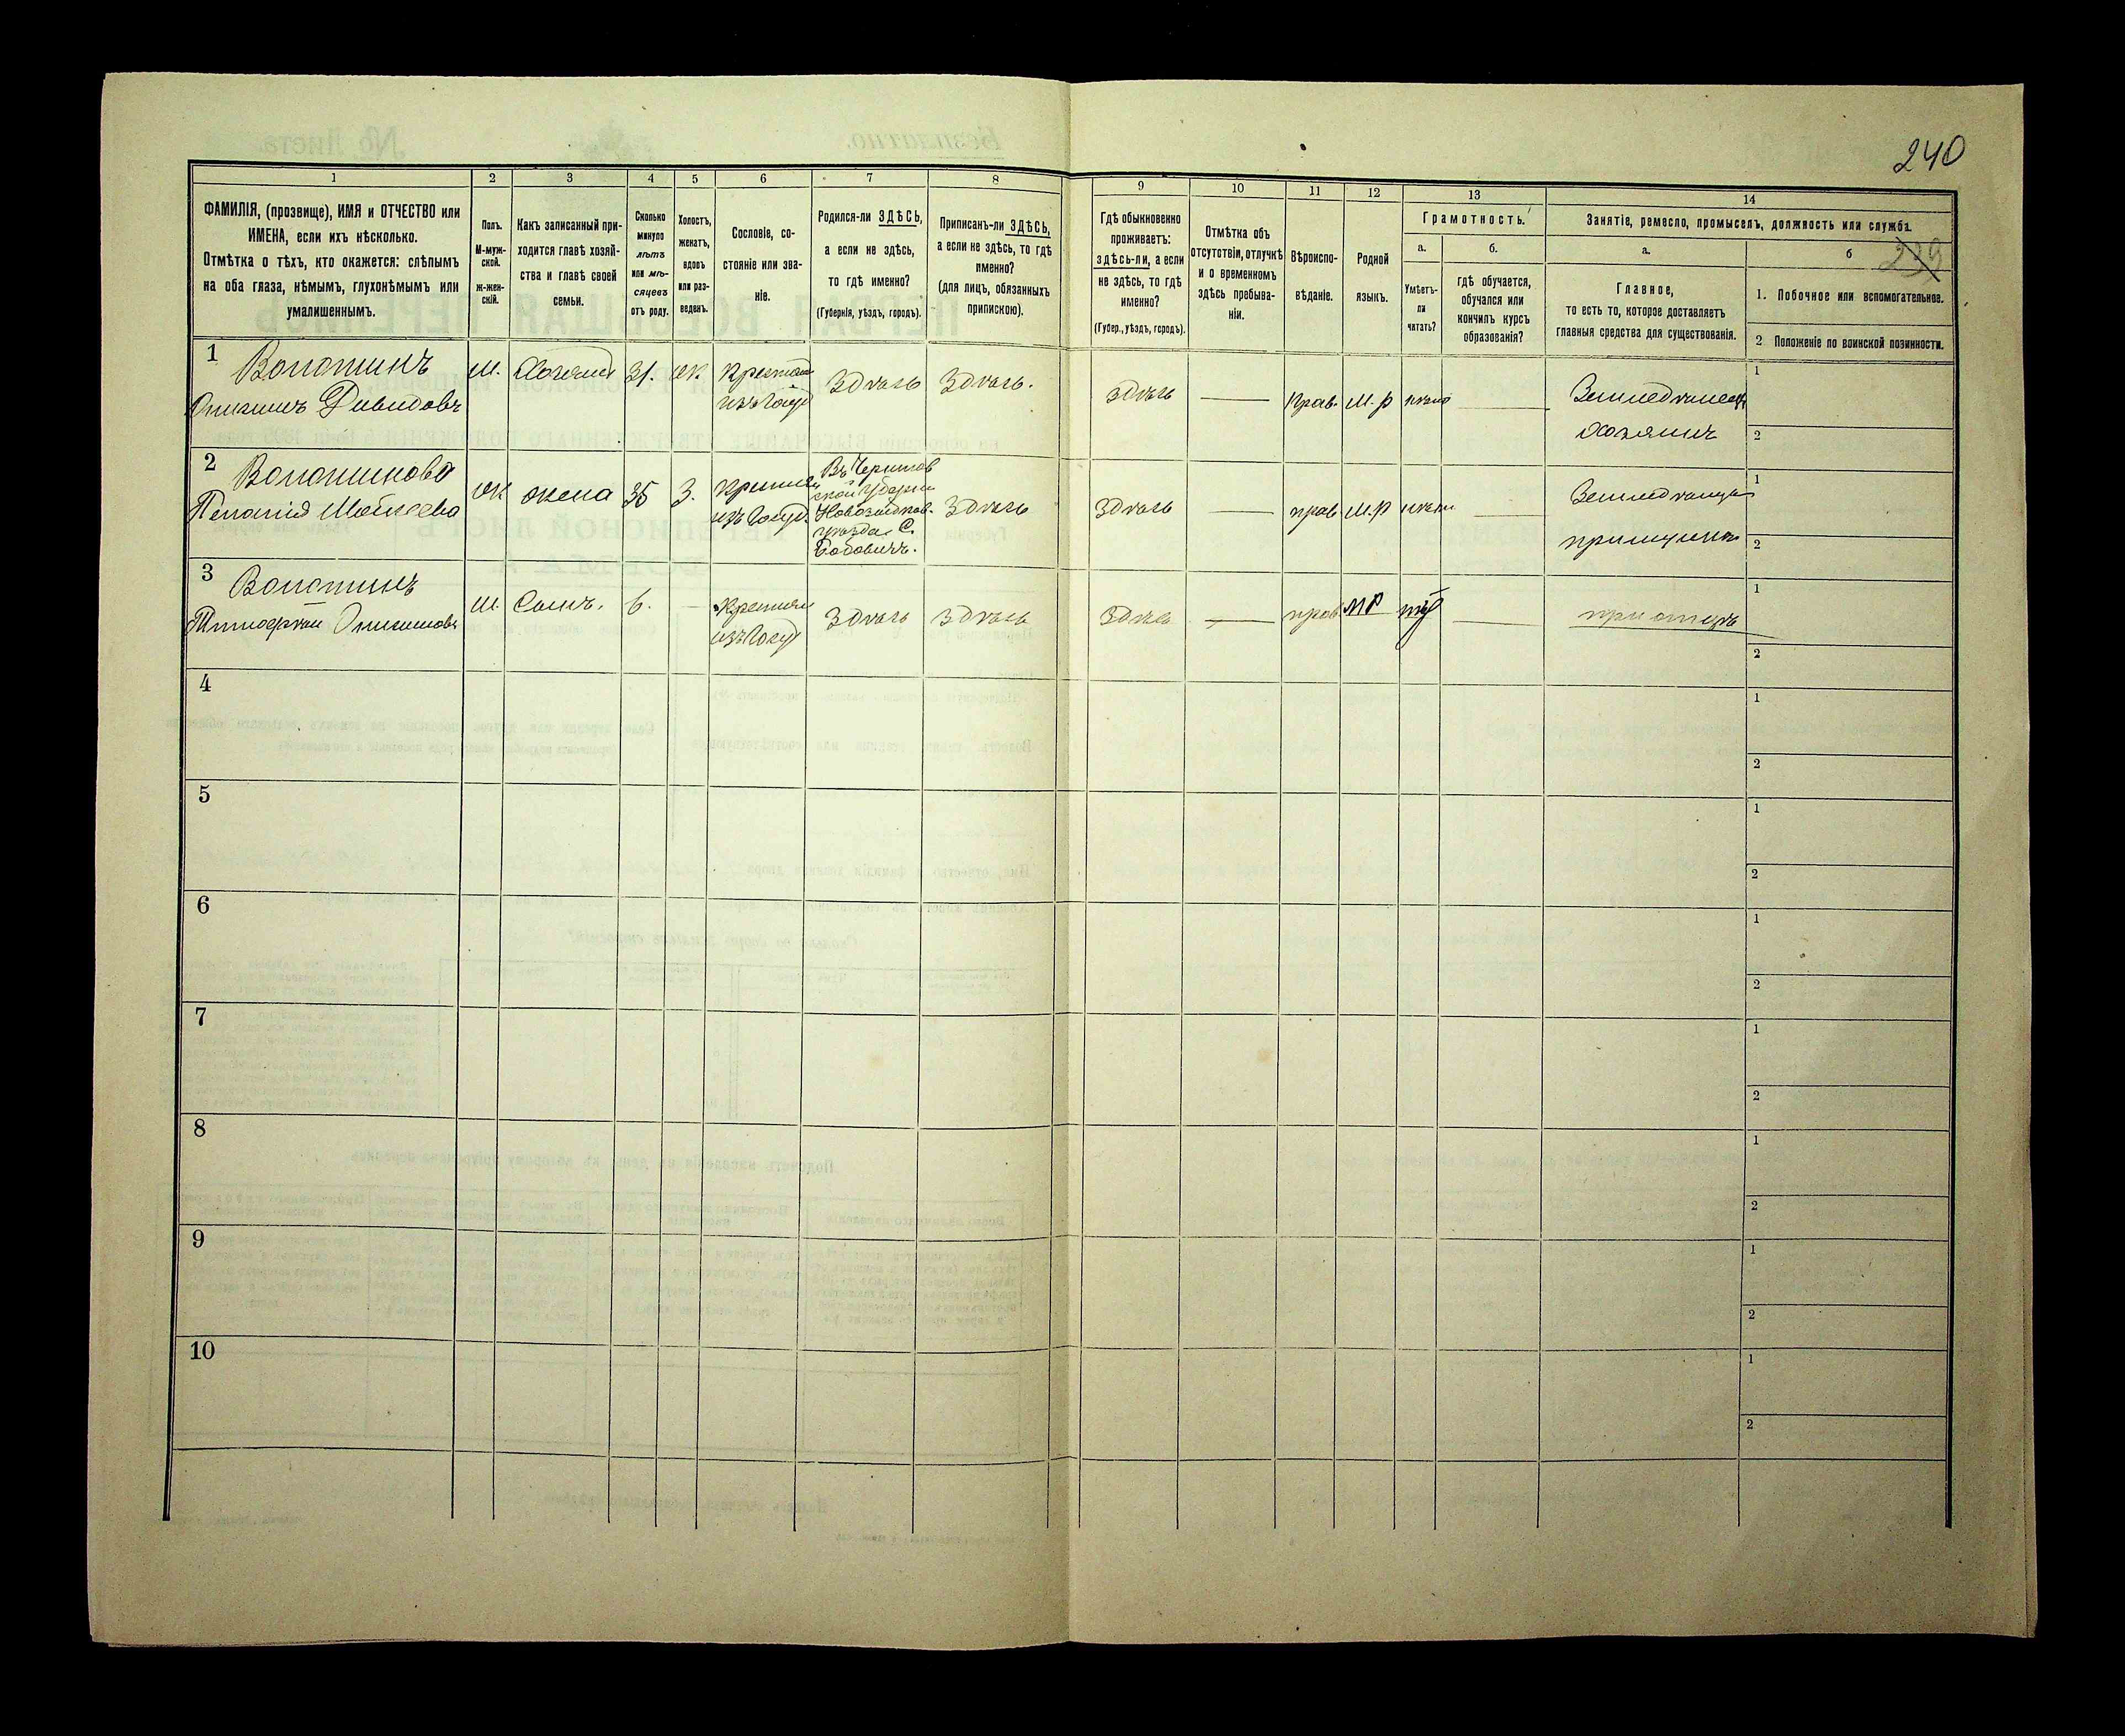 240
1 2 3 4 5 6 7 8 9 10 11 12 13 14
ФАМИЛІЯ, (прозвище), ИМЯ и ОТЧЕСТВО или
ИМЕНА, если ихъ нѣсколько.
Отмѣтка о тѣхъ, кто окажется: слѣпымъ
на оба глаза, нѣмымъ, глухонѣмымъ или
умалишеннымъ.
Полъ.
М-муж-
ской.
ж-жен-
скій.
Какъ записанный при-
ходится главѣ хозяй-
ства и главѣ своей
семьи.
Сколько
минуло
лѣтъ
или мѣ-
сяцевъ
отъ роду.
Холостъ,
женатъ,
вдовъ
или раз-
веденъ.
Сословіе, со-
стояніе или зва-
ніе.
Родился-ли ЗДѢСЬ,
а если не здѣсь,
то гдѣ именно?
(Губернія, уѣздъ, городъ).
Приписанъ-ли ЗДѢСЬ,
а если не здѣсь, то гдѣ
именно?
(для лицъ, обязанныхъ
припискою).
Гдѣ обыкновенно
проживаетъ:
здѣсь-ли, а если
не здѣсь, то гдѣ
именно?
(Губер., уѣздъ, городъ).
Отмѣтка объ
отсутствіи, отлучкѣ
и о временномъ
здѣсь пребыва-
ніи.
Вѣроиспо-
вѣданіе.
Родной
языкъ.
Грамотность.
а.
Умѣетъ-
ли
читать?
б.
гдѣ обучается,
обучался или
кончилъ курсъ
образованія?
Занятіе, ремесло, промыселъ, должность или служба.
а.
Главное,
то есть то, которое доставляетъ
главныя средства для существованія.
б
239
1. Побочное или вспомогательное.
2 Положеніе по воинской повинности.
1
Давидовъ
м.
Хозяинъ
31.
ж.
Крестьян
изъ Госуд
Здѣсь
Здѣсь.
здѣсь
Прав.
М.р
нѣтъ
Земледѣлецъ
хозяинъ
1
2
2
Моисеева
ж
жена
35
з.
Крестьян
изъ Госуд.
Въ Чернигов
ской губерніи
Новозыбков.
уѣзда С.
Здѣсь
Здѣсь
прав
М.р
нѣтъ
1
2
3
Тимофей
м.
Сынъ.
6.
Крестьян
изъ Госуд
Здѣсь
Здѣсь
Здѣсь
прав
МР
при отцѣ
1
2
4
1
2
5
1
2
6
1
2
7
1
2
8
1
2
9
1
2
10
1
2